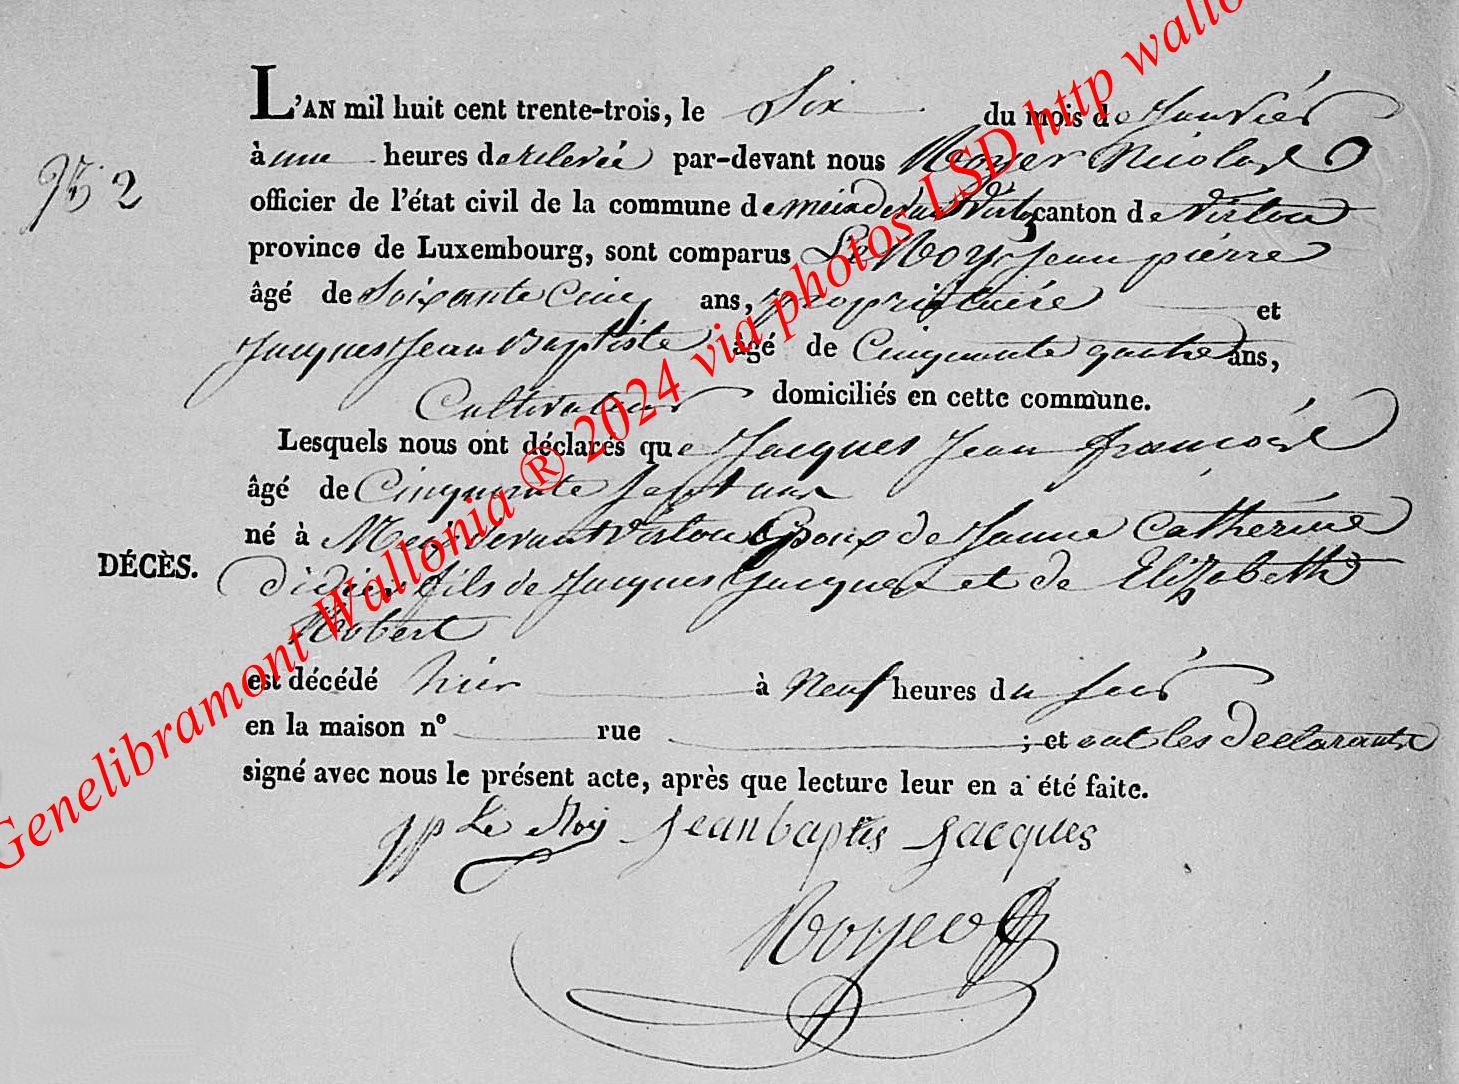 L'AN mil huit cent trente-trois, le Six du mois de Janvier
à une heures de relevée par-devant nous Royer Nicolas
N° 2
officier de l'état civil de la commune de meixdevant Virton canton de Virton
province de Luxembourg, sont comparus Le Roy Jean pierre
âgé de Soixante Cinq ans, propriétaire et
Jacques Jean Baptiste âgé de Cinquante quatre ans,
Cultivateur domiciliés en cette commune.
Lesquels nous ont déclarés que Jacques Jean francois
âgé de Cinquante Sept ans
né à Meix devant virton Epoux de Jeanne Catherine
DÉCÈS.
didier fils de Jacques Jacques et de Elizabeth
Robert
est décédé hier à Neuf heures du soir
en la maison n° rue ; et ont les declarants
signé avec nous le présent acte, après que lecture leur en a été faite.
JP Le Roy Jeanbaptis Jacques
Royer
Genelibramont Wallonia ® 2024 via photos LSD http wallo